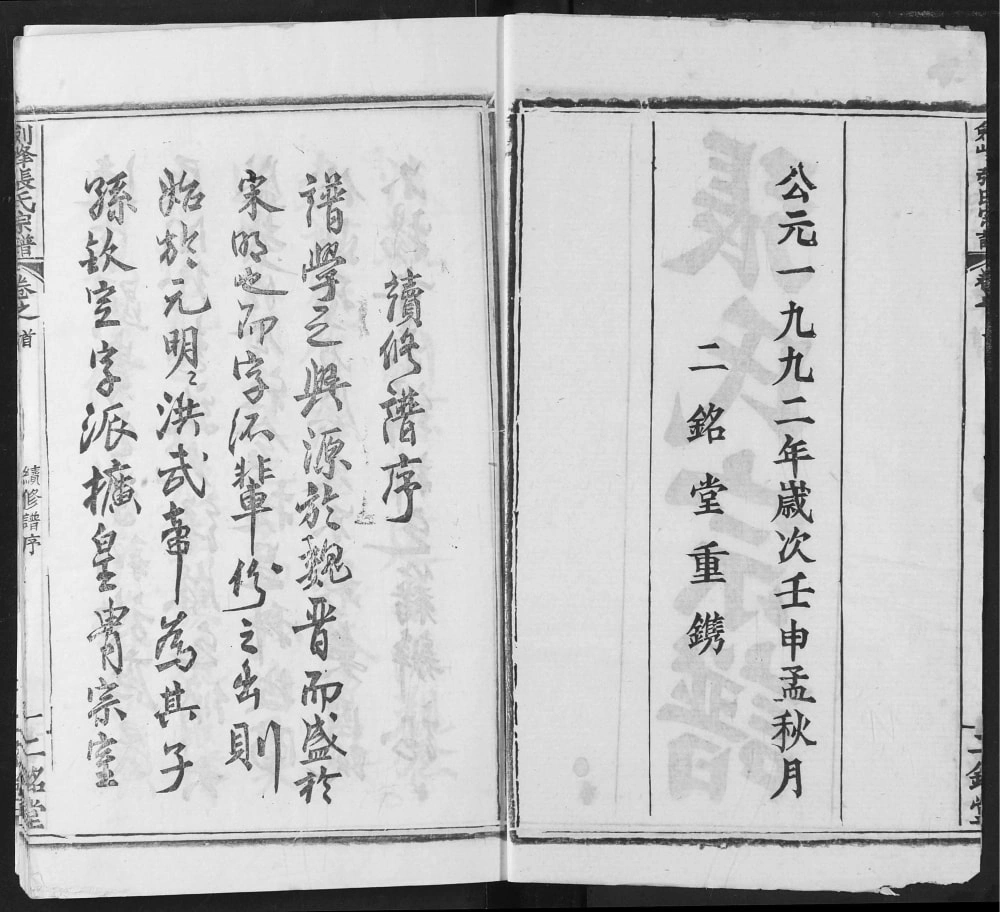 公元一九九二年歲次壬申孟秋月
二銘堂重鐫
張氏宗譜
續修譜序
譜學之興源於魏晋而盛於
宋明也而字派輩份之出則
始於元明〻洪武帝為其子
孫欽定字派擴皇胄宗室
劍峰張氏宗譜
卷之首
續修譜序
一
二銘堂